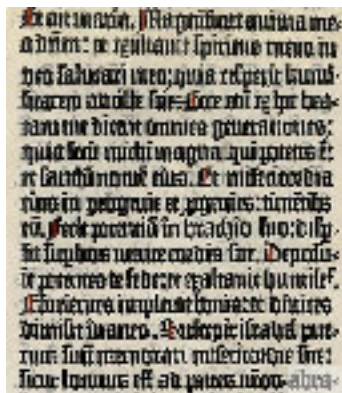 Et ait maria. Magnificat anima mea
dominū: et exultavit spiritus meus in
deo salutari meo; quia respexit humi-
litatem ancille sue. Ecce enī ex hoc bea-
tam me dicent omnes generationes:
quia fecit michi magna qui potens ē:
et sanctū nomē eius. Et misericordia
eius in progenies et progenies: timētibꝰ
eū. Fecit potentiā in brachio suo: disp-
sit superbos mente cordis sui. Deposu-
it potentes de sede: et exaltavit humiles.
Esurientes implevit bonis: et divites
dimisit inanes. Suscepit israhel pue-
rum suū: memorari misericordie sue:
sicut locutus est ad patres nrōs abra-